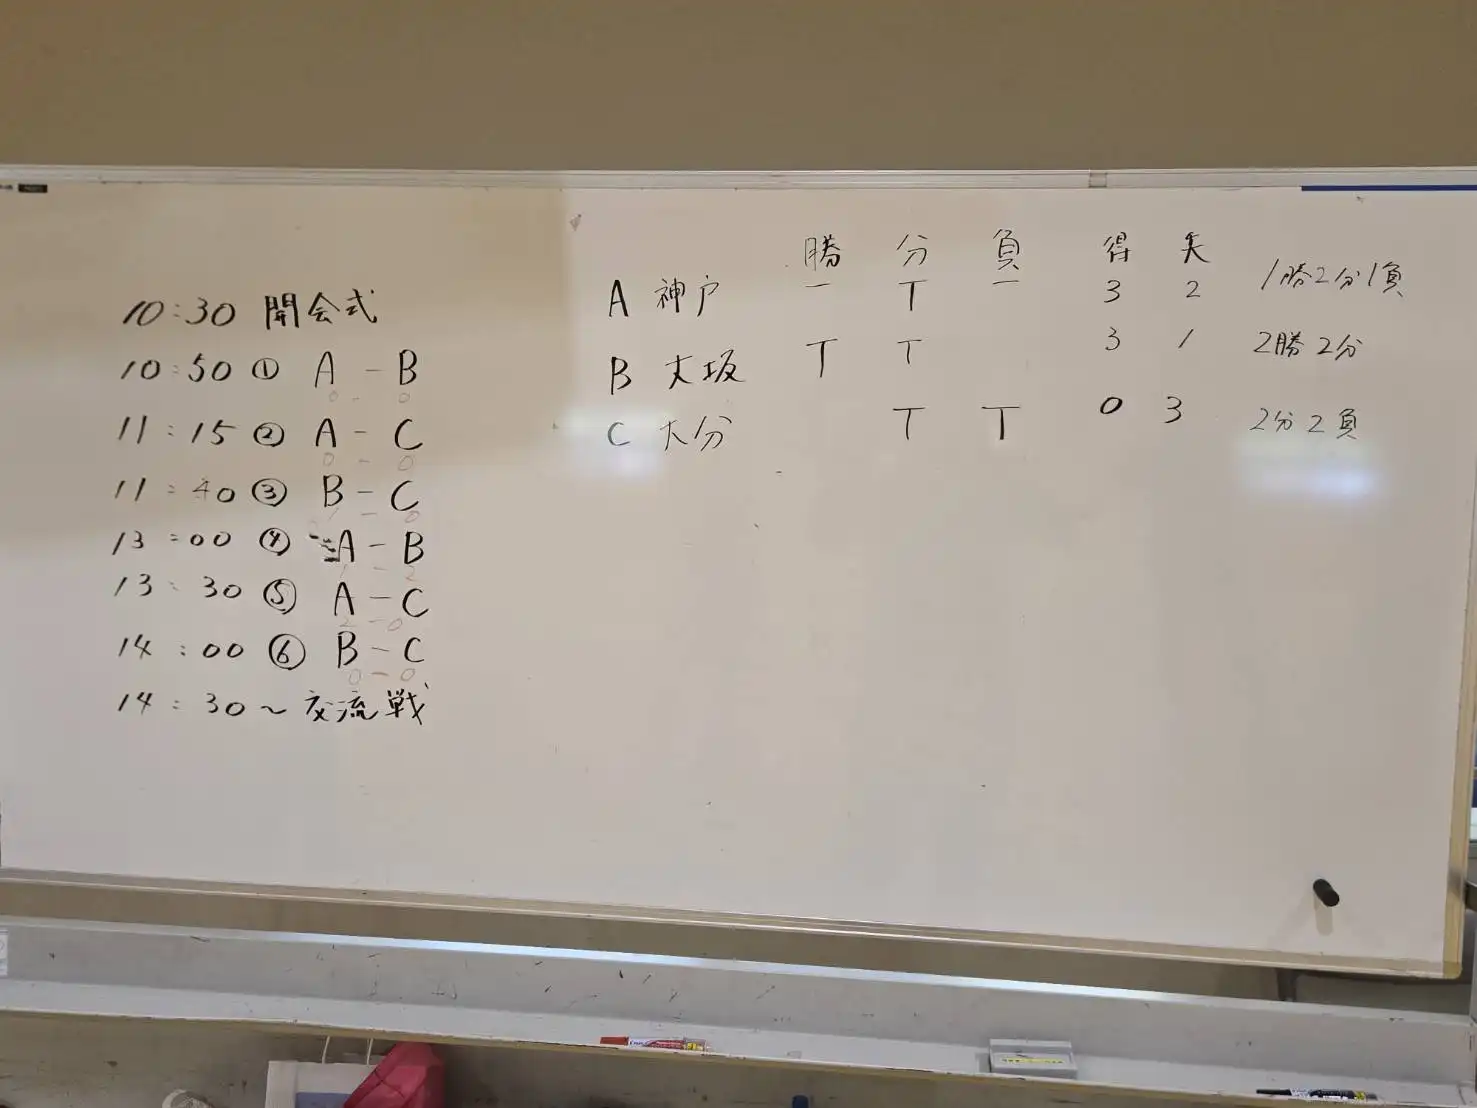 10:30 開会式
10:50 ① A - B
0 - 0
11:15 ② A - C
0 - 0
11:40 ③ B - C
1 - 0
13:00 ④ A - B
1 - 2
13:30 ⑤ A - C
2 - 0
14:00 ⑥ B - C
0 - 0
14:30～交流戦
勝 分 負 得 失
A 神戸 一 T 一 3 2 1勝2分1負
B 大坂 T T 3 1 2勝2分
C 大分 T T 0 3 2分2負